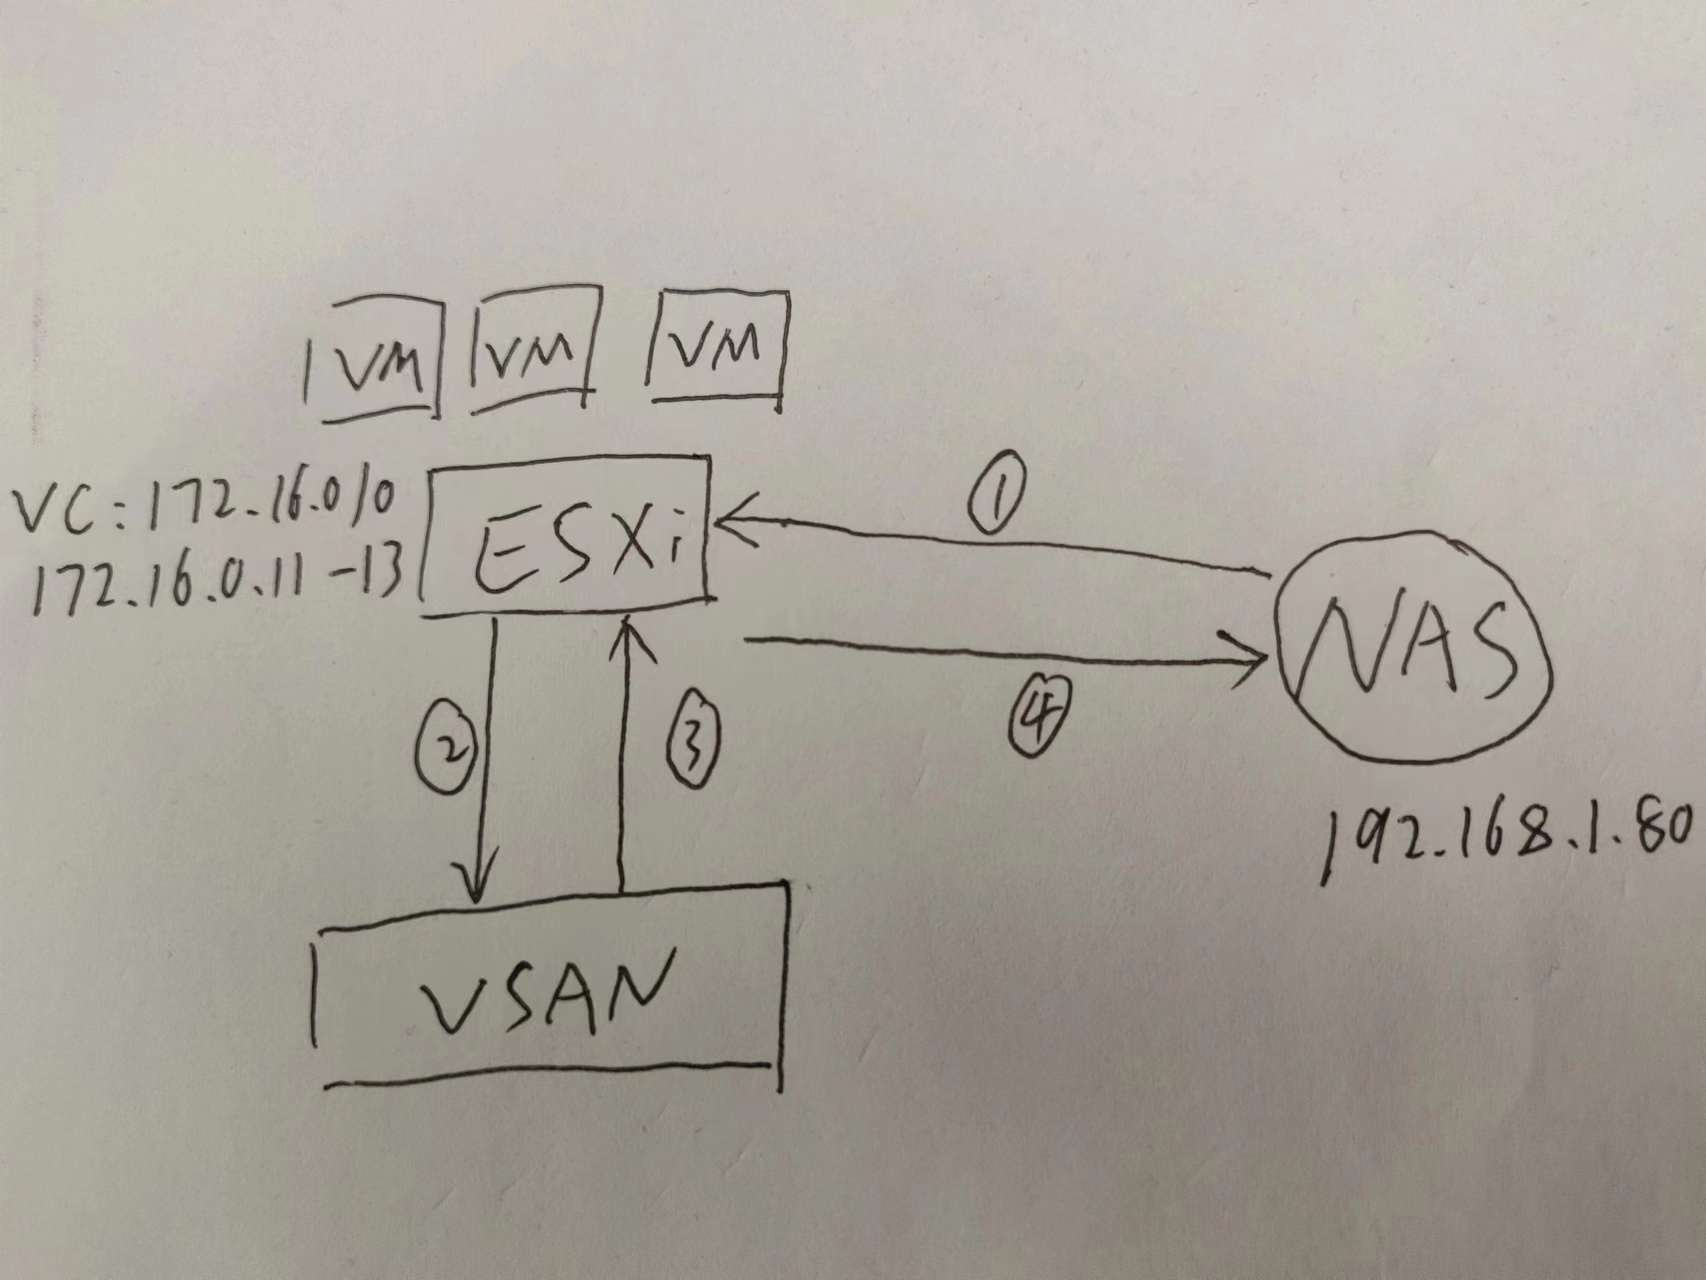 VM VM VM
①
VC: 172.16.0/0
172.16.0.11-13
ESXi
NAS
②
③
④
192.168.1.80
VSAN